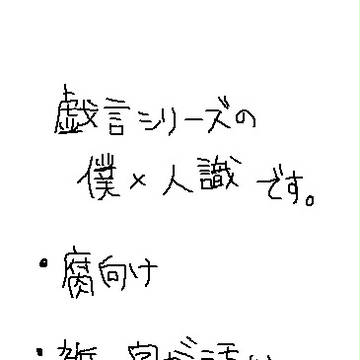 戯言シリーズの
僕×人識です。
・腐向け